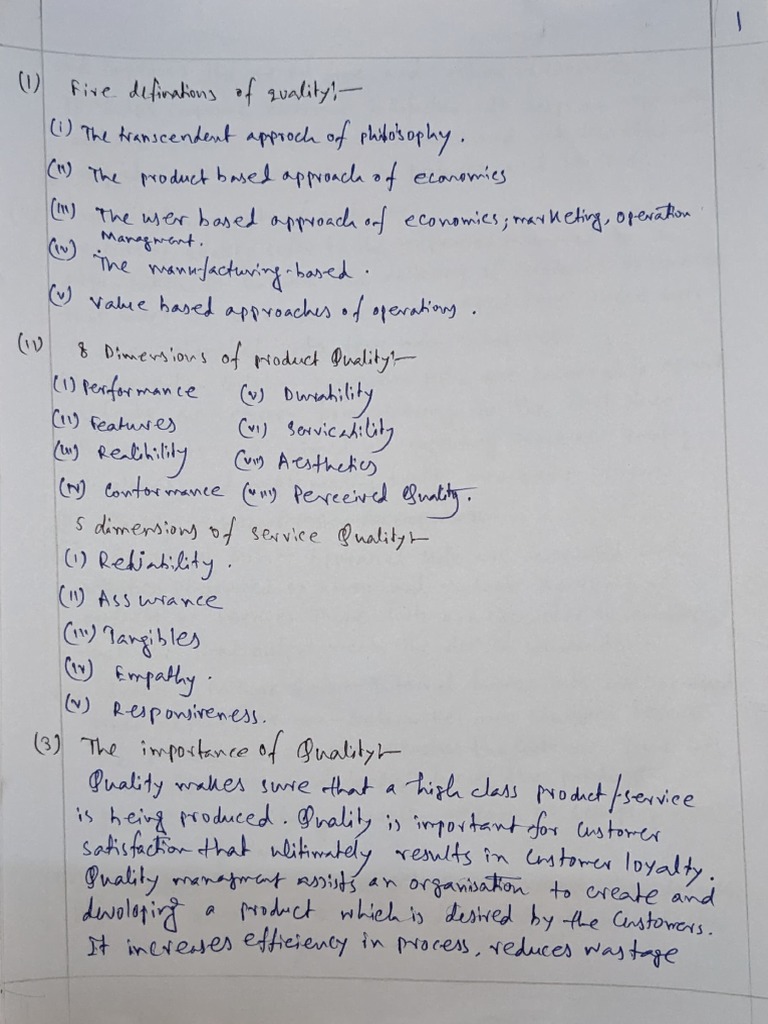 1
(1) Five definations of quality:-
(i) The transcendent approch of philosophy.
(ii) The product based approach of economics
(iii) The user based approach of economics, marketing, operation
Managment.
(iv) The manufacturing-based.
(v) value based approaches of operations.
(ii) 8 Dimensions of product Quality:-
(i) Performance (v) Durability
(ii) Features (vi) Servicability
(iii) Realibility (vii) Aesthetics
(iv) Conformance (viii) Perceived Quality.
5 dimensions of service Quality:-
(i) Reliability.
(ii) Assurance
(iii) Tangibles
(iv) Empathy.
(v) Responsiveness.
(3) The importance of Quality:-
Quality makes sure that a high class product/service
is being produced. Quality is important for customer
satisfaction that ulitimately results in customer loyalty.
Quality managment assists an organisation to create and
devoloping a product which is desired by the customers.
It increases efficiency in process, reduces wastage